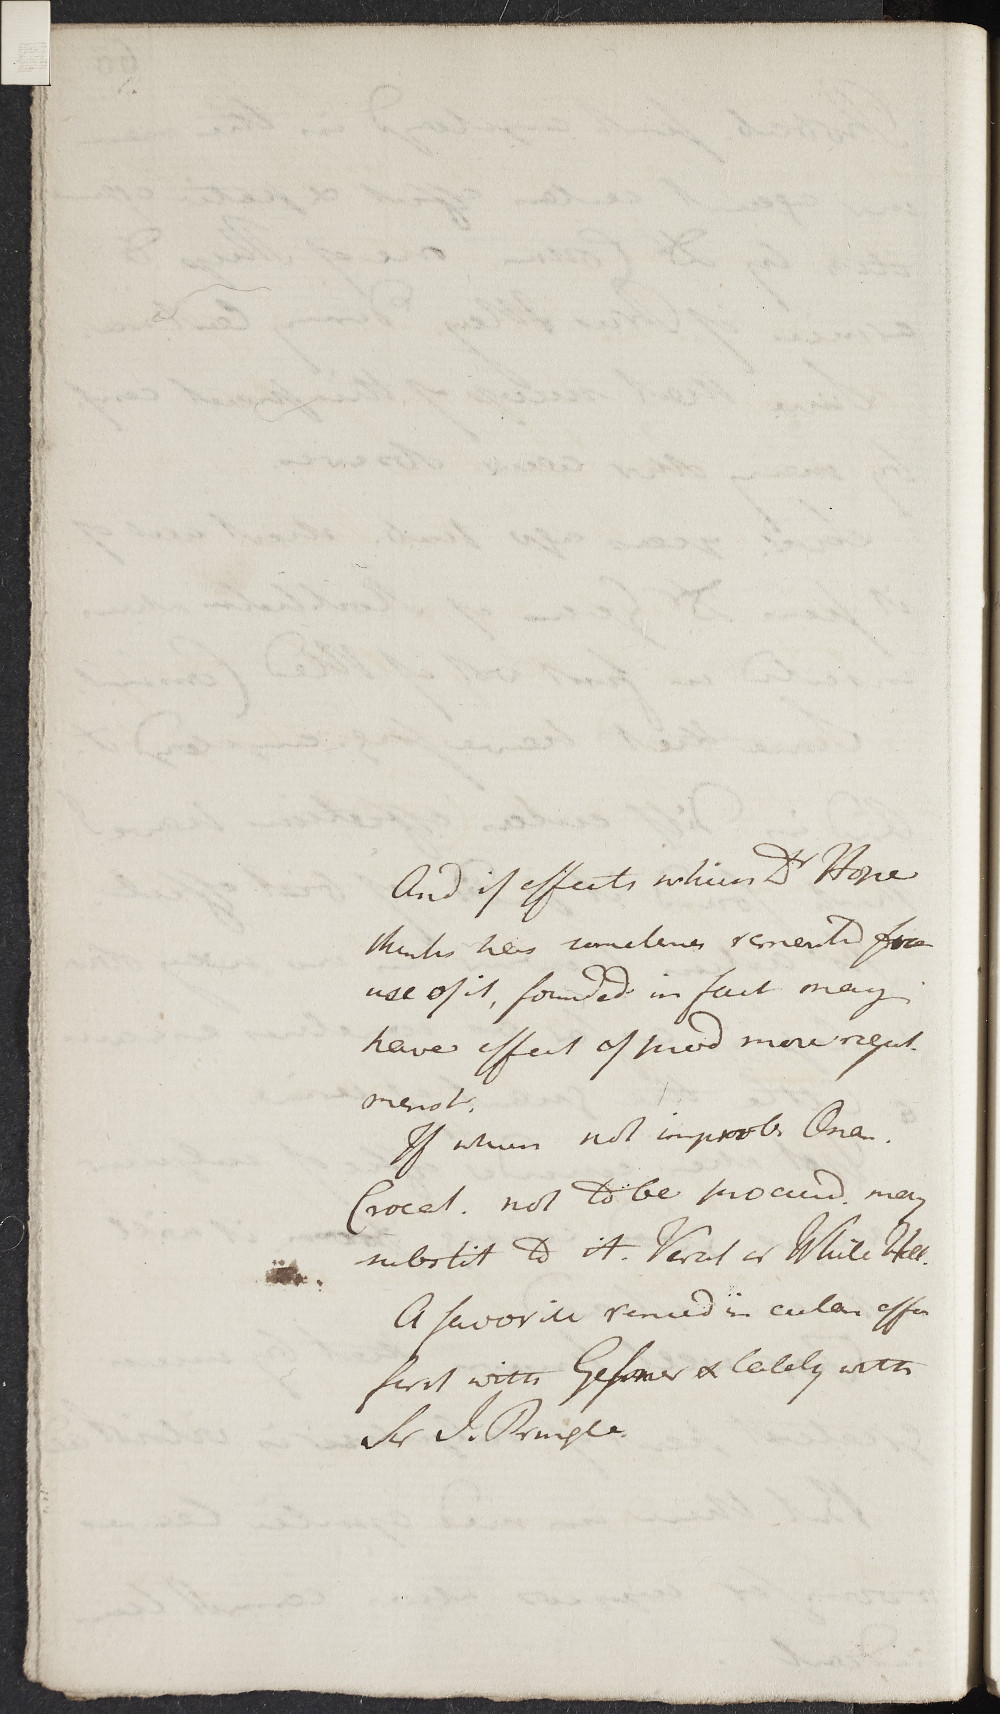 And if effects which Dr Hope
thinks has sometimes resulted from
use of it, founded in fact may
have effect of prod more regul.
menst.
If when not improb One.
Crocat. not to be procurd. may
substit to it. Verat or White Hell.
A favorite remed in cutan affn
first with Gesner & lately with
Sir J. Pringle.